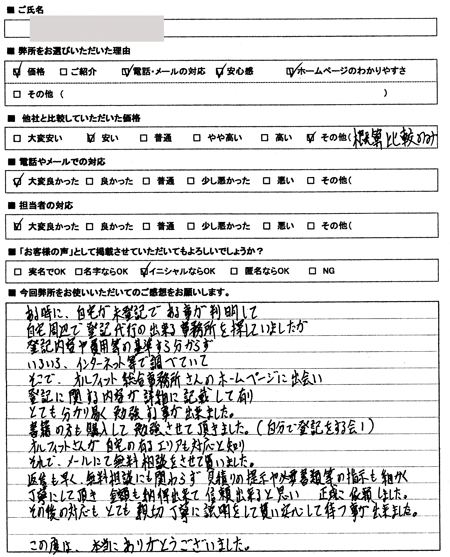 ■ ご氏名
■ 弊所をお選びいただいた理由
☑ 価格 □ ご紹介 ☑ 電話・メールの対応 ☑ 安心感 ☑ ホームページのわかりやすさ
□ その他 ( )
■ 他社と比較していただいた価格
□ 大変安い ☑ 安い □ 普通 □ やや高い □ 高い ☑ その他( 概算比較のみ
■ 電話やメールでの対応
☑ 大変良かった □ 良かった □ 普通 □ 少し悪かった □ 悪い □ その他(
■ 担当者の対応
☑ 大変良かった □ 良かった □ 普通 □ 少し悪かった □ 悪い □ その他(
■ 「お客様の声」として掲載させていただいてもよろしいでしょうか?
□ 実名でOK □ 名字ならOK ☑ イニシャルならOK □ 匿名ならOK □ NG
■ 今回弊所をお使いいただいてのご感想をお願いします。
ある時に、自宅が未登記である事が判明して
自宅周辺で登記代行の出来る事務所を探していましたが
登記内容や費用等の基準すら分からず
いろいろ、インターネット等で調べていて
そこで、オルフィット総合事務所さんのホームページに出会い
登記に関する内容が詳細に記載して有り
とても分かり易く勉強する事が出来ました。
書籍の方も購入して勉強させて頂きました。(自分で登記をする会!)
オルフィットさんが自宅の有るエリアも対応と知り
それで、メールにて無料相談をさせて貰いました。
返信も早く、無料相談にも関わらず見積りの提示や必要書類等の指示も細かく
丁寧にして頂き 金額も納得出来て信頼出来ると思い 正式に依頼しました。
その後の対応もとても親切丁寧に説明をして貰い安心して待つ事が出来ました。
この度は、本当にありがとうございました。